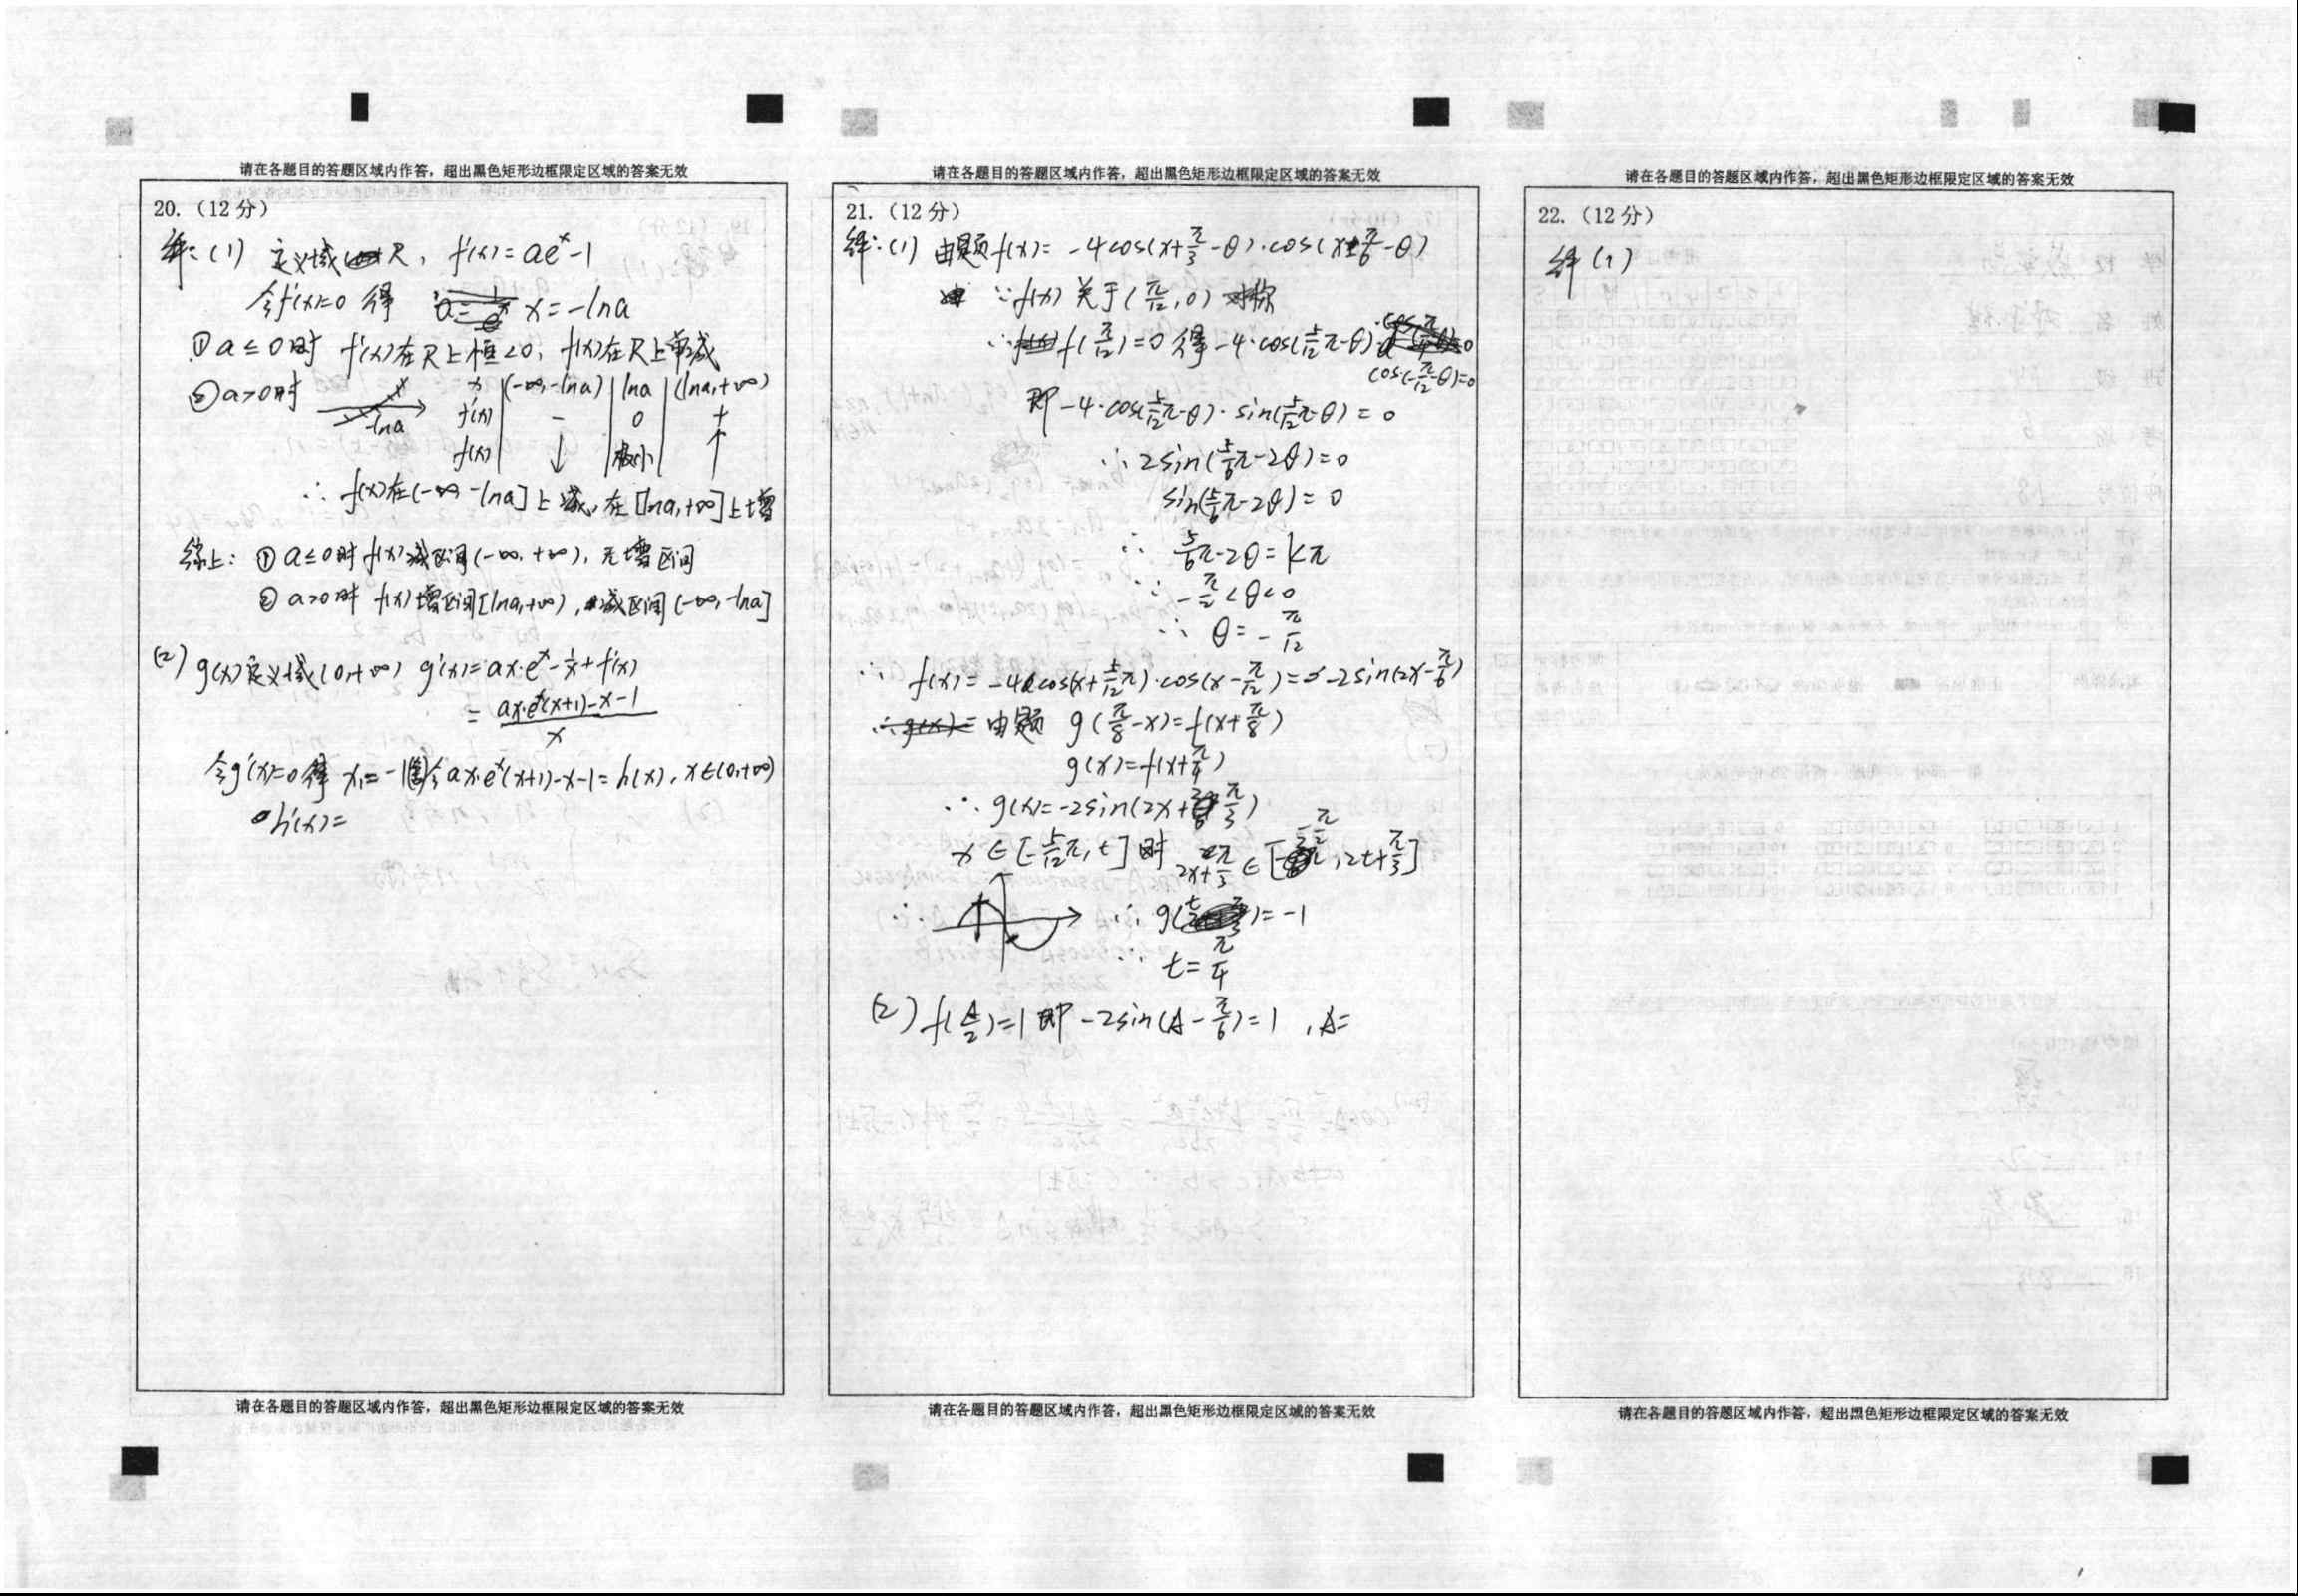 请在各题目的答题区域内作答，超出黑色矩形边框限定区域的答案无效
20.（12分）
解：(1) 定义域R，f'(x)=ae^x-1
令f'(x)=0 得 x=-lna
①a≤0时 f'(x)在R上恒<0，f(x)在R上单减
②a>0时 -lna
x (-∞,-lna) lna (lna,+∞)
f'(x) - 0 +
f(x) ↓ 极小 ↑
∴ f(x)在(-∞,-lna]上减，在[lna,+∞]上增
综上：①a≤0时f(x)减区间(-∞,+∞)，无增区间
②a>0时 f(x)增区间[lna,+∞)，减区间(-∞,-lna]
(2) g(x)定义域(0,+∞) g'(x)=ax·e^x-1/x+f'(x)
=(ax·e^x(x+1)-x-1)/x
令g'(x)=0得 x₁=-1 令ax·e^x(x+1)-x-1=h(x)，x∈(0,+∞)
h'(x)=
请在各题目的答题区域内作答，超出黑色矩形边框限定区域的答案无效
请在各题目的答题区域内作答，超出黑色矩形边框限定区域的答案无效
21.（12分）
解：(1) 由题f(x)=-4cos(x+π/3-θ)·cos(x-π/6-θ)
∵f(x)关于(π/12,0)对称
∴f(π/12)=0 得-4·cos(5/12π-θ)·cos(-π/12-θ)=0
即-4·cos(5/12π-θ)·sin(5/12π-θ)=0
∴2sin(5/6π-2θ)=0
sin(5/6π-2θ)=0
∴ 5/6π-2θ=kπ
∵ -π/2<θ<0
∴ θ=-π/12
∴ f(x)=-4cos(x+5/12π)·cos(x-π/12)=-2sin(2x-π/6)
由题 g(π/8-x)=f(x+π/8)
g(x)=f(x+π/4)
∴g(x)=-2sin(2x+π/3)
x∈[-5/12π,t]时 2x+π/3∈[-π/2,2t+π/3]
∴ ∴ g(t)=-1
∴ t=π/4
(2) f(A/2)=1即-2sin(A-π/6)=1，A=
请在各题目的答题区域内作答，超出黑色矩形边框限定区域的答案无效
请在各题目的答题区域内作答，超出黑色矩形边框限定区域的答案无效
22.（12分）
解(1)
请在各题目的答题区域内作答，超出黑色矩形边框限定区域的答案无效